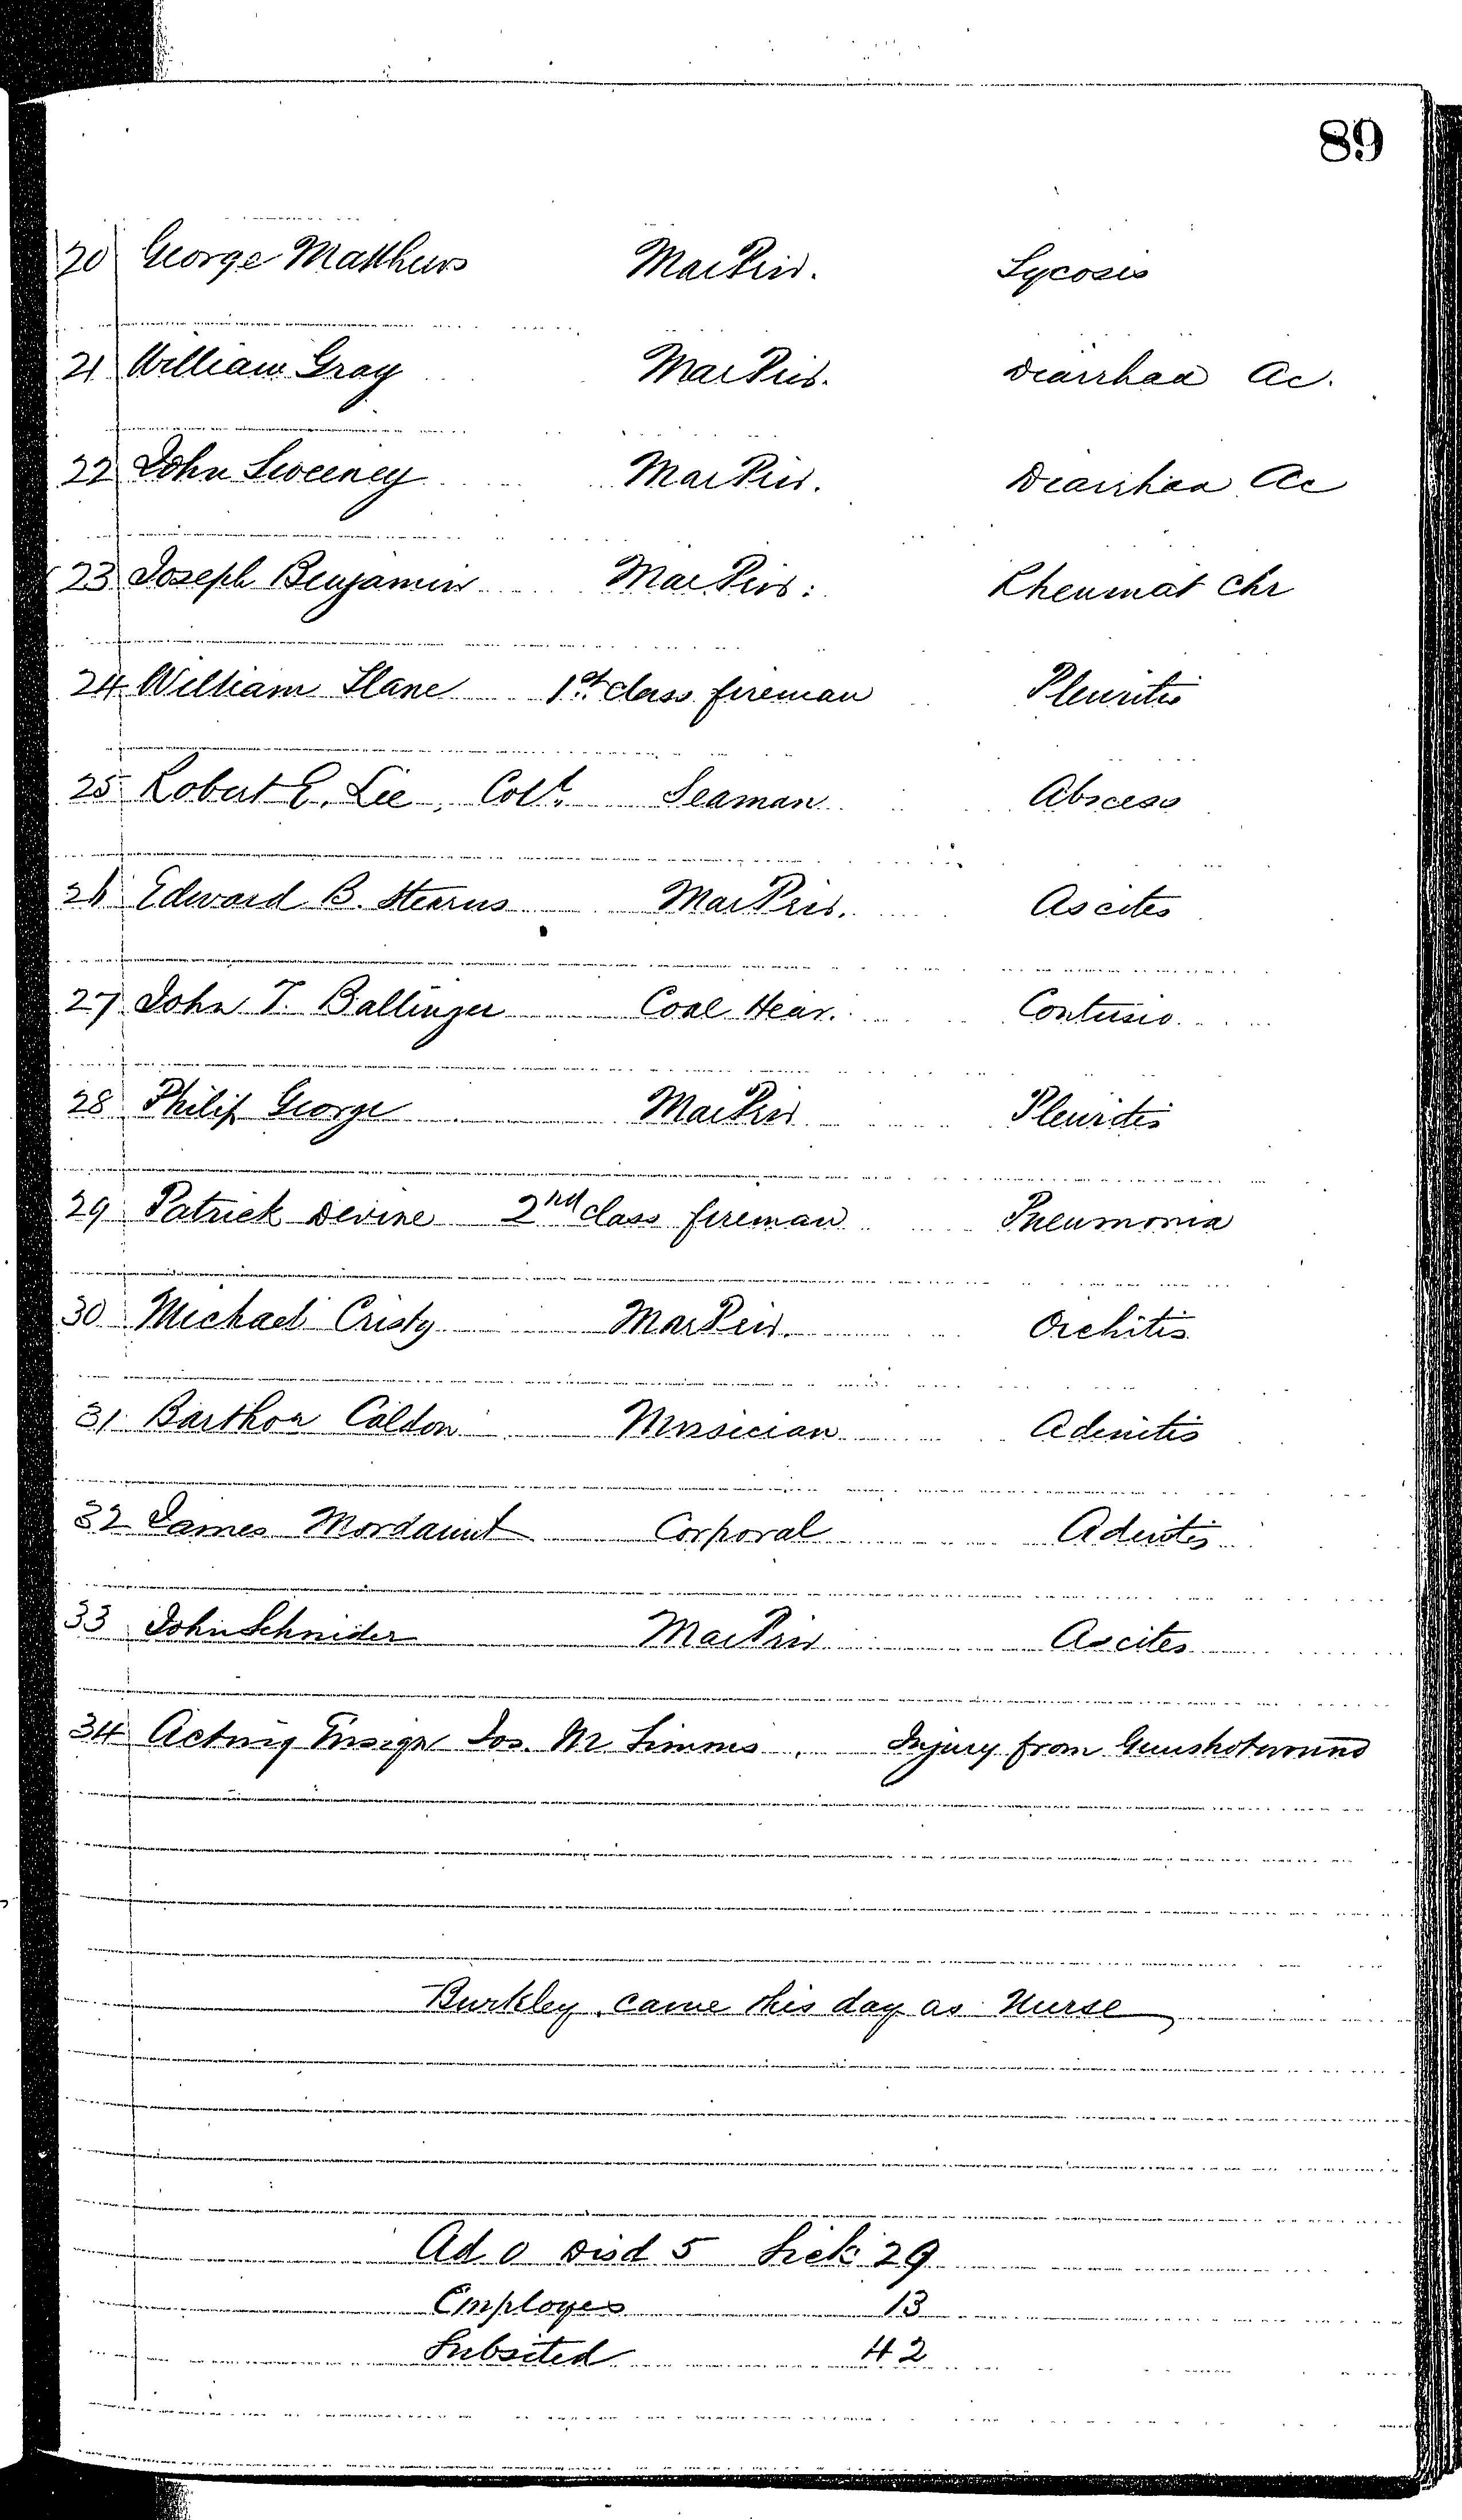 89
20 George Matthews Mar Priv. Sycosis
21 William Gray Mar Priv. Diarrhaa Ac.
22 John Sweeney Mar Priv. Diarrhaa Ac
23 Joseph Benjamin Mar Priv: Rheumat Chr
24 William Slane 1st class fireman Pleuritis
25 Robert E. Lee, Cold. Seaman Abscess
26 Edward B. Stearns Mar Priv. Ascites
27 John T. Ballinger Coal Heav. Contusio
28 Philip George Mar Priv Pleuritis
29 Patrick Devine 2nd class fireman Pneumonia
30 Michael Cristy Mar Priv. Orchitis
31 Barthoa Caldon Musician Adenitis
32 James Mordaunt Corporal Adenitis
33 John Schnider Mar Priv Ascites
34 Acting Ensign Jos. M Simms. Injury from Gunshotwound
Burkley came this day as Nurse
Ad 0 Disd 5 Sick 29
Employes 13
Subsited 42